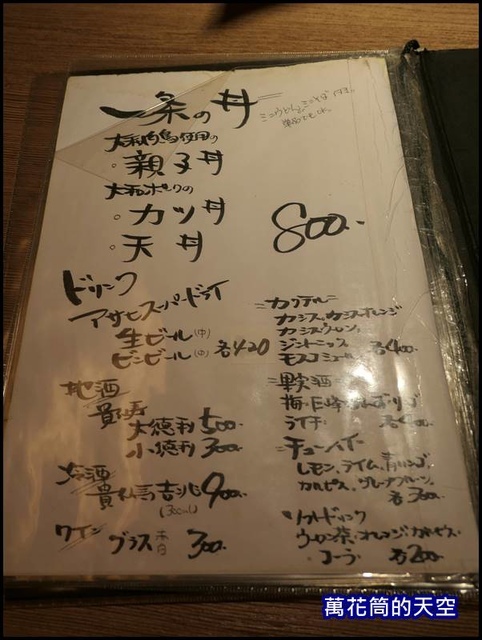 一条の丼
大和肉鳥使用の
・親子丼
大和ポークの
・カツ丼
・天丼
800.-
ドリンク
アサヒスーパードライ
生ビール(中)
ビンビール(中) 各420
地酒
大徳利 500.-
小徳利 300.-
冷酒
900.-
(300ml)
ワイン
グラス 赤 白 300.-
=カクテル=
カシスソーダ、カシスオレンジ
カシスウーロン
ジントニック
モスコミュール 各400.-
=果実酒=
梅・巨峰・りんご
ライチ 各400.-
=チューハイ=
レモン、ライム、青リンゴ
カルピス、グレープフルーツ
各300
ソフトドリンク
ウーロン茶、オレンジ、カルピス
コーラ 各200.-
萬花筒的天空